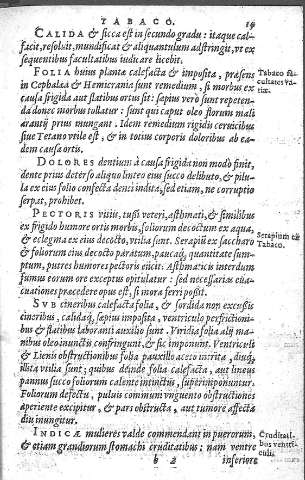 TABACO. 19
CALIDA & sicca est in secundo gradu: itaque cal-
facit, resoluit, mundificat & aliquantulum adstringit, vt ex
sequentibus facultatibus iudicare licebit.
FOLIA huius plantæ calefacta & imposita, præsens
in Cephalæa & Hemicrania sunt remedium, si morbus ex
causa frigida aut flatibus ortus sit: sæpius verò sunt repeten-
da donec morbus tollatur: sunt qui caput oleo florum mali
arantij prius inungant. Idem remedium rigidis ceruicibus
siue Tetano vtile est, & in totius corporis doloribus ab ea-
dem causa ortis.
Tabaco fa-
cultates va-
riæ.
DOLORES dentium à causa frigida non modò finit,
dente prius deterso aliquo linteo eius succo delibuto, & pilu-
la ex eius folio confecta denti indita, sed etiam, ne corruptio
serpat, prohibet.
PECTORIS vitiis, tussi veteri, asthmati, & similibus
ex frigido humore ortis morbis, foliorum decoctum ex aqua,
& eclegma ex eius decocto, vtilia sunt. Serapiū ex saccharo
& foliorum eius decocto paratum, paucaq́; quantitate sum-
ptum, putres humores pectoris eiicit. Asthmaticis interdum
fumus eorum ore exceptus opitulatur: sed necessariæ eua-
cuationes præcedere opus est, si mora ferri possit.
Serapium ex
Tabaco.
SVB cineribus calefacta folia, & sordida non excussis
cineribus, calidaq́; sæpius imposita, ventriculo perfrictioni-
bus & flatibus laboranti auxilio sunt. Viridia folia alij ma-
nibus oleo inunctis confringunt, & sic imponunt. Ventriculi
& Lienis obstructionibus folia pauxillo aceto intrita, diuq́;
illita vtilia sunt; quibus deinde folia calefacta, aut lineus
pannus succo foliorum calente intinctus, superimponuntur.
Foliorum defectu, puluis communi vnguento obstructiones
aperiente excipitur, & pars obstructa, aut tumore affecta
diu inungitur.
INDICÆ mulieres valde commendant in puerorum,
& etiam grandiorum stomachi cruditatibus; nam ventre
Cruditati-
bus ventri-
culi.
b 2 inferiore